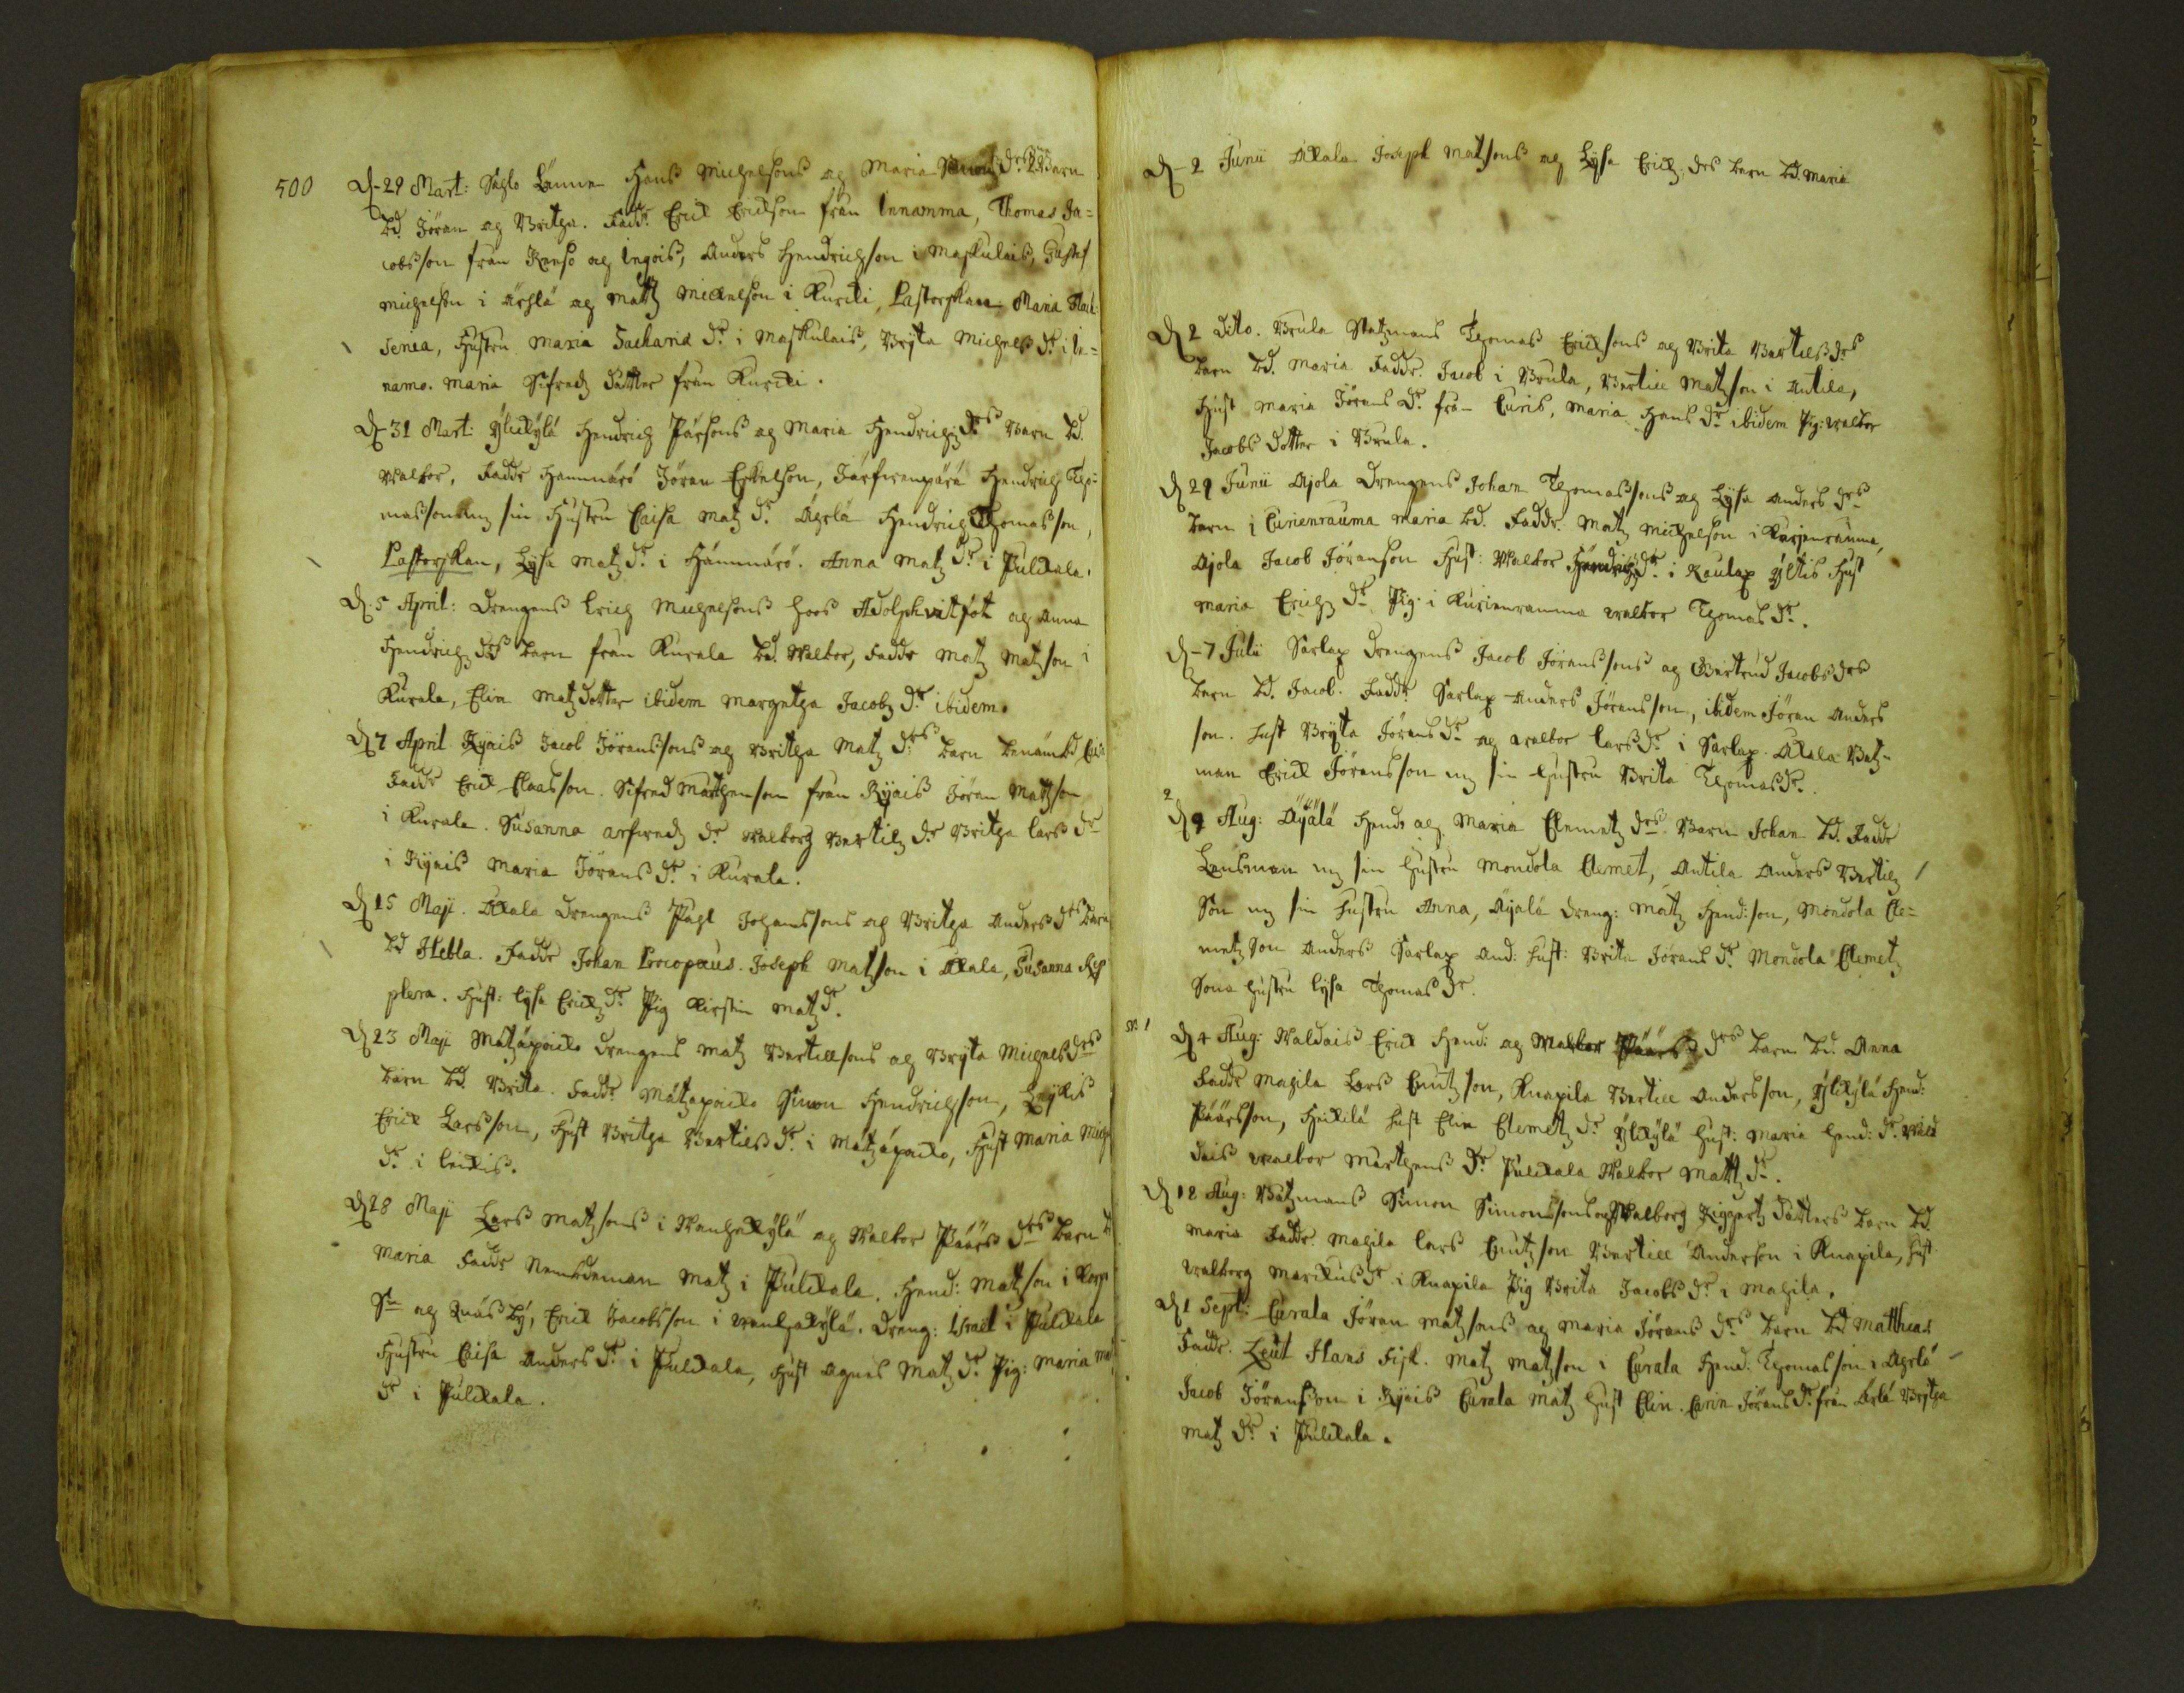 500
D. 29 Mart: Saglo Länne Hans Michelsons og Maria Simons dr 2 Barn
Bd. Jöran og Britga. Fadd. Erick Erickson från Innamma, Thomas Ja=
cobsson från Renso og Ingois, Anders Hendrichson i Maskulais, Gustaf
Michelson i Ärflä og Mattz Mickelson i Kurcki, Pastorskan Maria
Senia, Hustru Maria Sacharia dr i Maskulais, Bryta Michels dr i In=
namo. Maria Sifredz dotter från Kurcki.
D. 31 Mart: Ylickylä Hendrich Pärsons og Maria Hendrichz drs Barn Bd.
Walbor, Faddr Hammärö Jöran Eskelson, Järfwenpärä Hendrich Tho=
masson mz sin Hustru Caisa Matz dr. Ägrlä Hendrich Thomasson,
Pastorskan, Lysa Matz dr i Hämmärö. Anna Matz dr i Pulckala.
D. 5 April: Drengens Erich Michelsons hoos Adolph witfot og Anna
Hendrichz drs barn från Kurala Bd. Walbor, Faddr Matz Matzson i
Kurala, Elin Matzdotter ibidem Margetga Jacobz dr ibidem.
D. 7 April Ryais Jacob Jöranssons og Britga Matz drs barn benämbd
Faddr Erick Claasson. Sifred Marthenson från Ryais Jöran Matzson
i Kurala. Susanna arfwedz dr Walborg Bertilz dr Britga Lars dr
i Ryais Maria Jörans dr i Kurala.
D. 15 Maji. Alala Drengens Påhl Johanssons og Britga Anders drs Barn
Bd Hebla. Faddr Johan Procopæus. Joseph Matzson i Alala, Susanna
plera. Hust: Lysa Erickz dr Pig Kirstin Matz dr.
D. 23 Maji Matzäpoiclo Drengens Matz Bertillsons og Bryta Michels drs
Barn Bd. Brita. Fadd. Mätzäpoiclo Simon Hendrichson, Leykis
Erick Larsson, Hust Britga Bertils dr i Mätzäpoiclo, Hust Maria Mich
dr i Leickis.
D. 28 Maji Lars Matzsons i Wanhakylä og Walbor Päärs drs barn
Maria Faddr Nemdeman Matz i Pulckala. Hend: Matzson i
og Knäs by, Erick Jacobsson i Wanhakylä. Dreng: Israel i Pulckala
Hustru Caisa Anders dr i Pulckala, Hust Agnes Matz dr. Pig: Maria
dr i Pulckala.
D. 2 Junii Alala Joseph Matzsons og Lysa Erickz drs barn Bd. Maria
D. 2 Dito. Wrula Batzmans Thomas Ericksons og Brita Bertils drs
Barn Bd. Maria Faddr. Jacob i Wrula, Bertill Matzson i Antila,
Hust Maria Jörans dr från Curis, Maria Hans dr ibidem Pig: Walbor
Jacobs dotter i Wrula.
D. 29 Junii Ajola Drengens Johan Thomassons og Lysa Anders drs
Barn i Curienrauma Maria Bd. Faddr. Matz Michelson i Kurjenrauma,
Ajola Jacob Jöranson Hust: Walbor Hendrichz dr i Rautax Yltis Hust
Maria Erichz dr Pig: i Kurienrauma Walbor Thomas dr.
D. 7 Julii Sarlax Drengens Jacob Jöranssons og Gertrud Jacobs drs
Barn Bd. Jacob. Faddr Sarlax Anders Jöransson, ibidem Jöran Anders
son. Hust Bryta Jörans dr og Walbor Lars dr i Sarlax. Alala Batz-
man Erick Jöransson mz sin hustru Brita Thomas dr.
2
D. 9 Aug: Äyälä Hendr og Maria Clemetz drs. Barn Johan Bd. Faddr
Lensman mz sin hustru Mondola Clemet, Antila Anders Bertilz
Son mz sin hustru Anna, Äyälä Dreng: Matz Hend:son, Mondola Cle=
metz Son Anders Sarlax And: Hust: Brita Jörans dr Mondola Clemetz
Sons hustru Lysa Thomas dr.
N. 1
D. 4 Aug: Waldais Erick Hend: og Walbor Päärs drs barn Bd. Anna
Faddr Mahila Lars Cnutzson, Knapila Bertill Andersson, Ylikylä Hend:
Päärsson, Heickilä Hust Elin Clemetz dr Ylikylä Hust: Maria Hend: dr Wald
dais Walbor Marthens dr Pulckala Walbor Mattz dr.
D. 18 Aug: Båtzmans Simon Simonssons og Walborg Riggertz dotters barn Bd.
Maria Faddr. Mahila Lars Cnutzson Bertill Anderson i Knapila, Hust
Walborg Marckus dr i Knapila Pig Brita Jacobs dr i Mahila.
D. 1 Sept: Curala Jöran Matzsons og Maria Jörans drs barn Bd Matthias
Faddr. Leut Hans Fisk. Matz Matzson i Curala Hend: Thomasson i Agrlä
Jacob Jöransson i Ryais Curala Matz hust Elin. Carin Jörans dr från Ärlä Brytga
Matz dr i Pulckala.